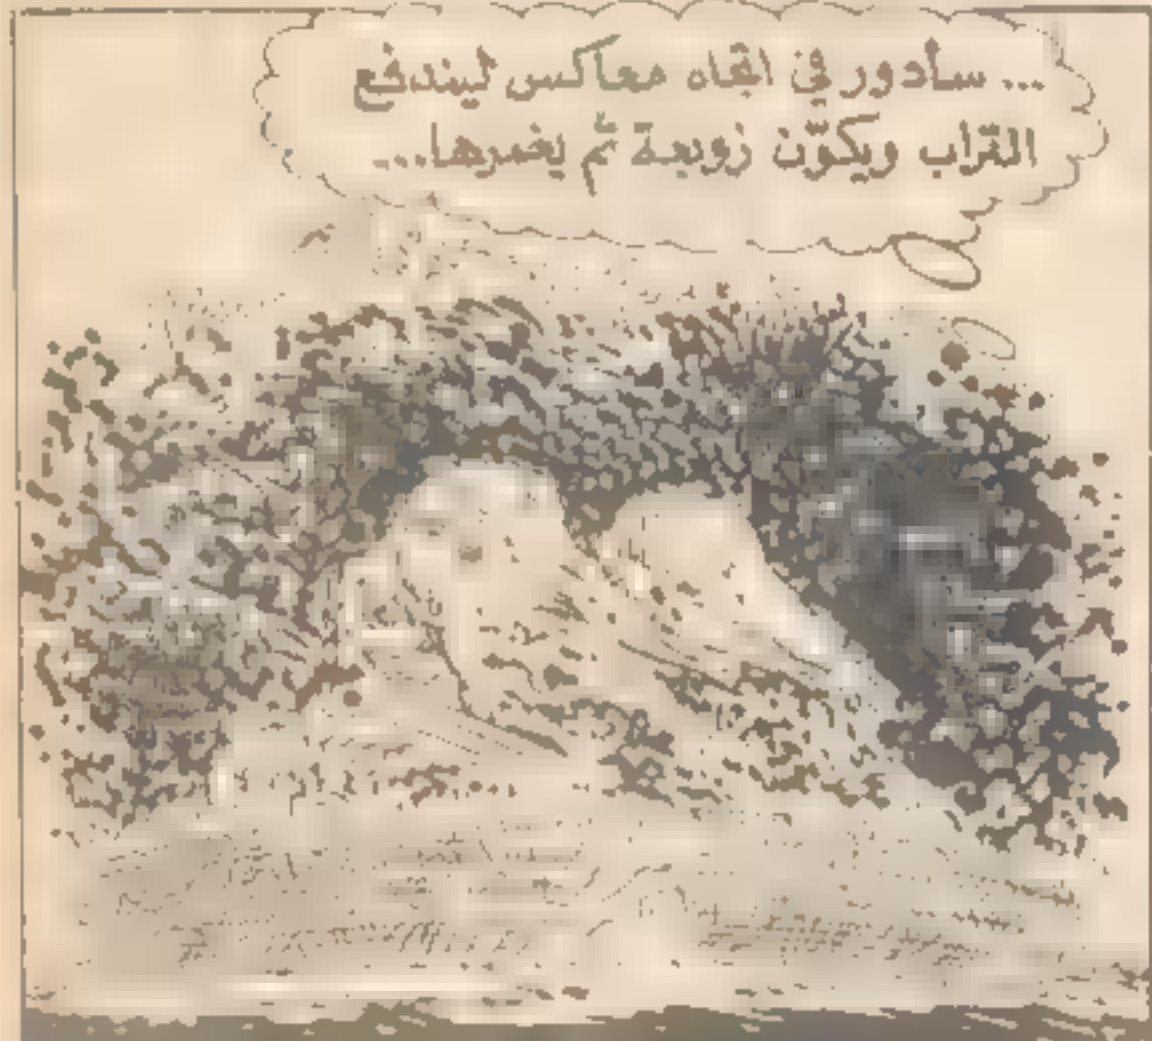 ... سأدور في اتجاه معاكس ليندفع
التراب ويكوّن زوبعة ثم يغمرها...